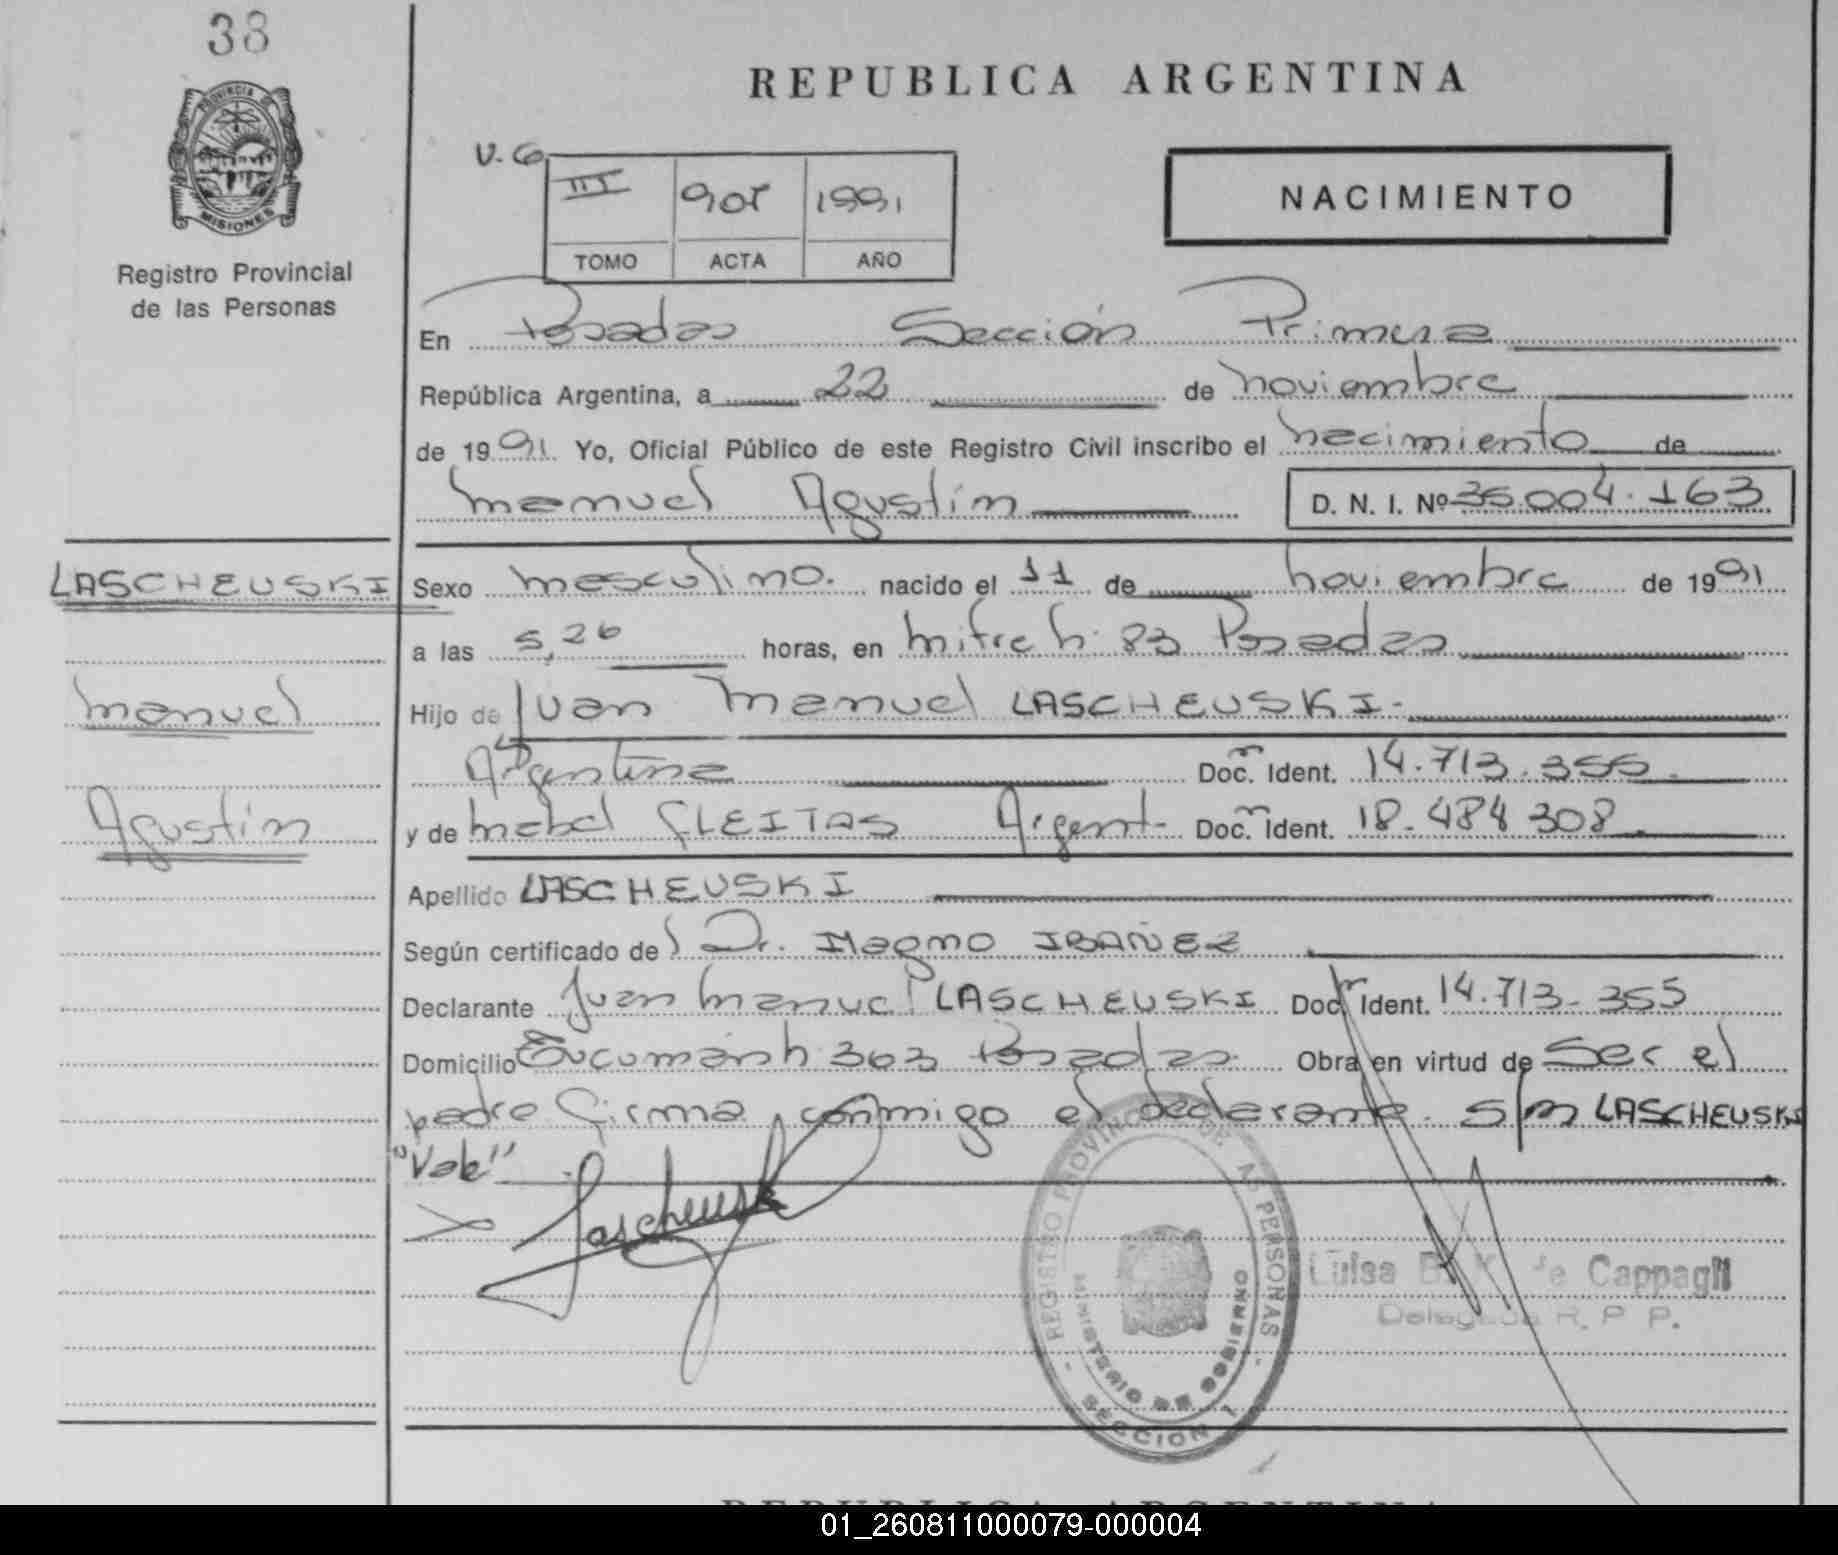 38
PROVINCIA DE
MISIONES
Registro Provincial
de las Personas
REPUBLICA ARGENTINA
V. G
III 905 1991
TOMO ACTA AÑO
NACIMIENTO
En Posadas Sección Primera
República Argentina, a 22 de noviembre
de 1991 Yo, Oficial Público de este Registro Civil inscribo el nacimiento de
Manuel Agustín D. N. I. Nº 36.004.163
LASCHEUSKI
Manuel
Agustín
Sexo masculino. nacido el 11 de noviembre de 1991
a las 5,26 horas, en Mitre h. 83 Posadas
Hijo de Juan Manuel LASCHEUSKI.
Argentina Doc. Ident. 14.713.355.
y de Mabel FLEITAS Argent. Doc. Ident. 18.484 308
Apellido LASCHEUSKI
Según certificado de Dr. Magno IBAÑEZ
Declarante Juan Manuel LASCHEUSKI Doc. Ident. 14.713.355
Domicilio Tucumán h. 363 Posadas. Obra en virtud de Ser el
padre firma conmigo el declarante. S/m LASCHEUSKI
"Vale"
Lascheuski
REGISTRO PROVINCIAL DE LAS PERSONAS
MINISTERIO DE GOBIERNO
SECCION 1
Luisa B. K. de Cappagli
Delegada R. P. P.
REPUBLICA ARGENTINA
01_260811000079-000004